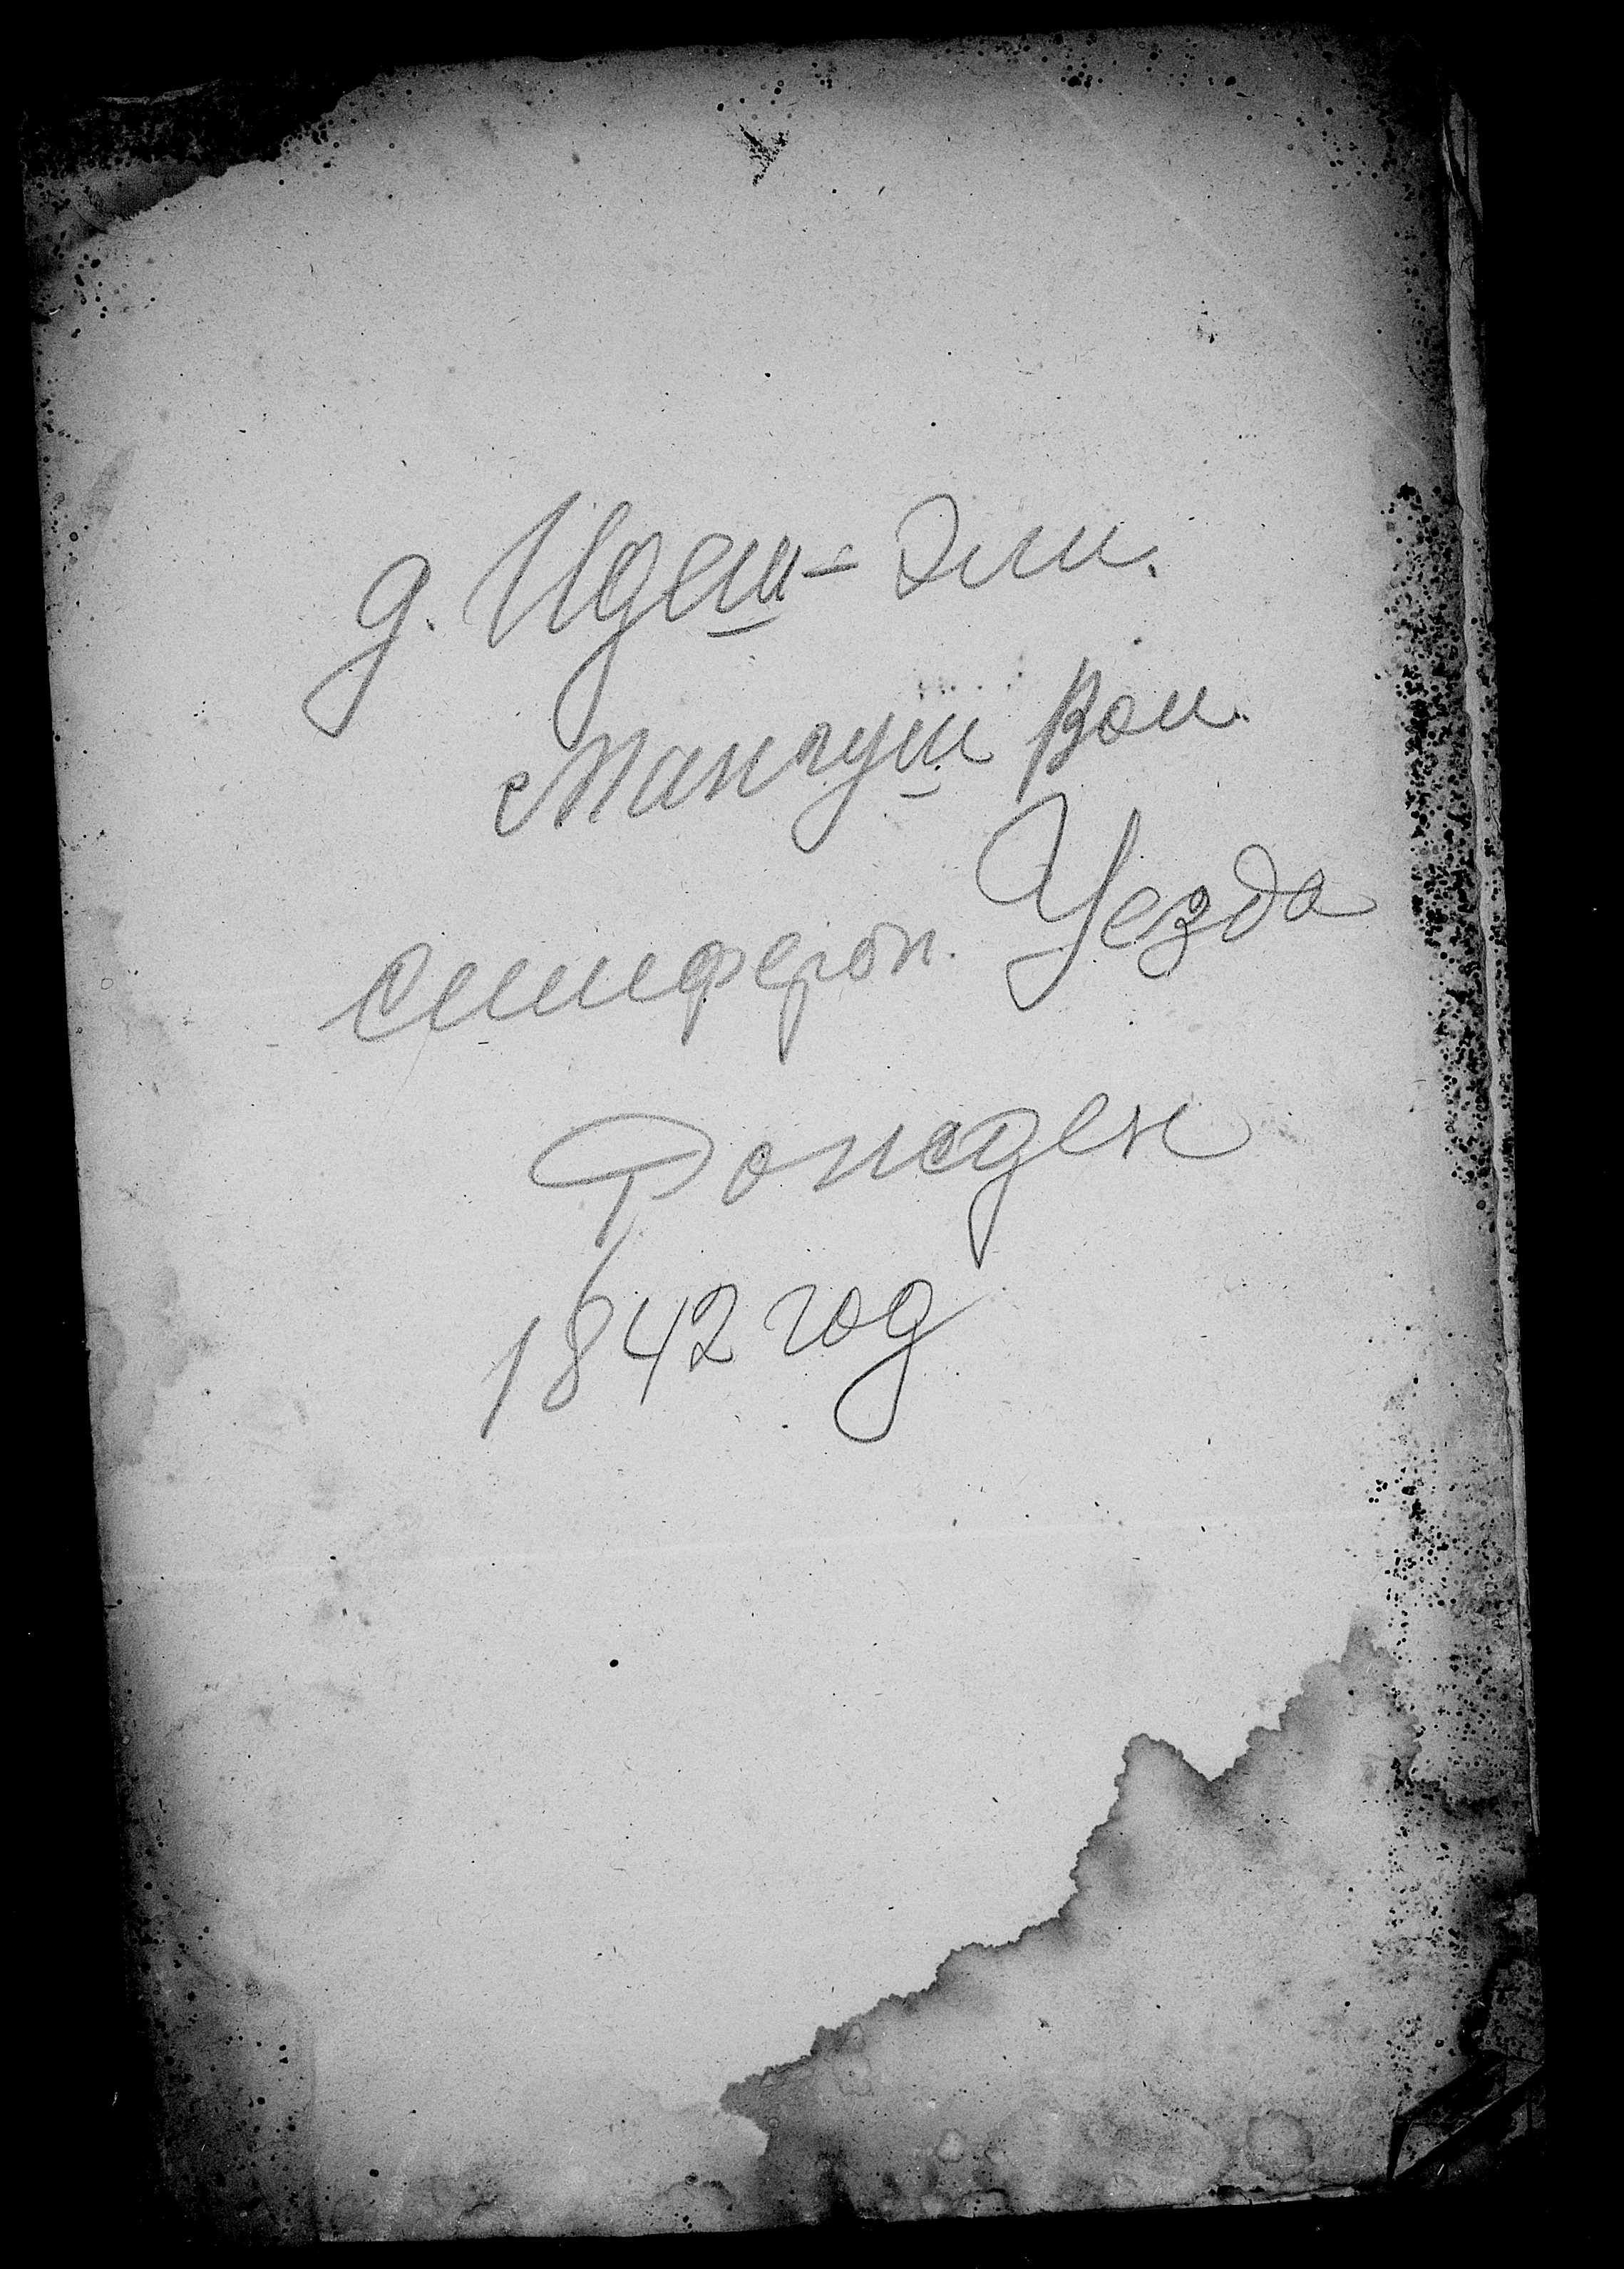 д. Идеш-Эли.
Мангуш Вол.
Симфероп. Уезда
Рожден
1842 год